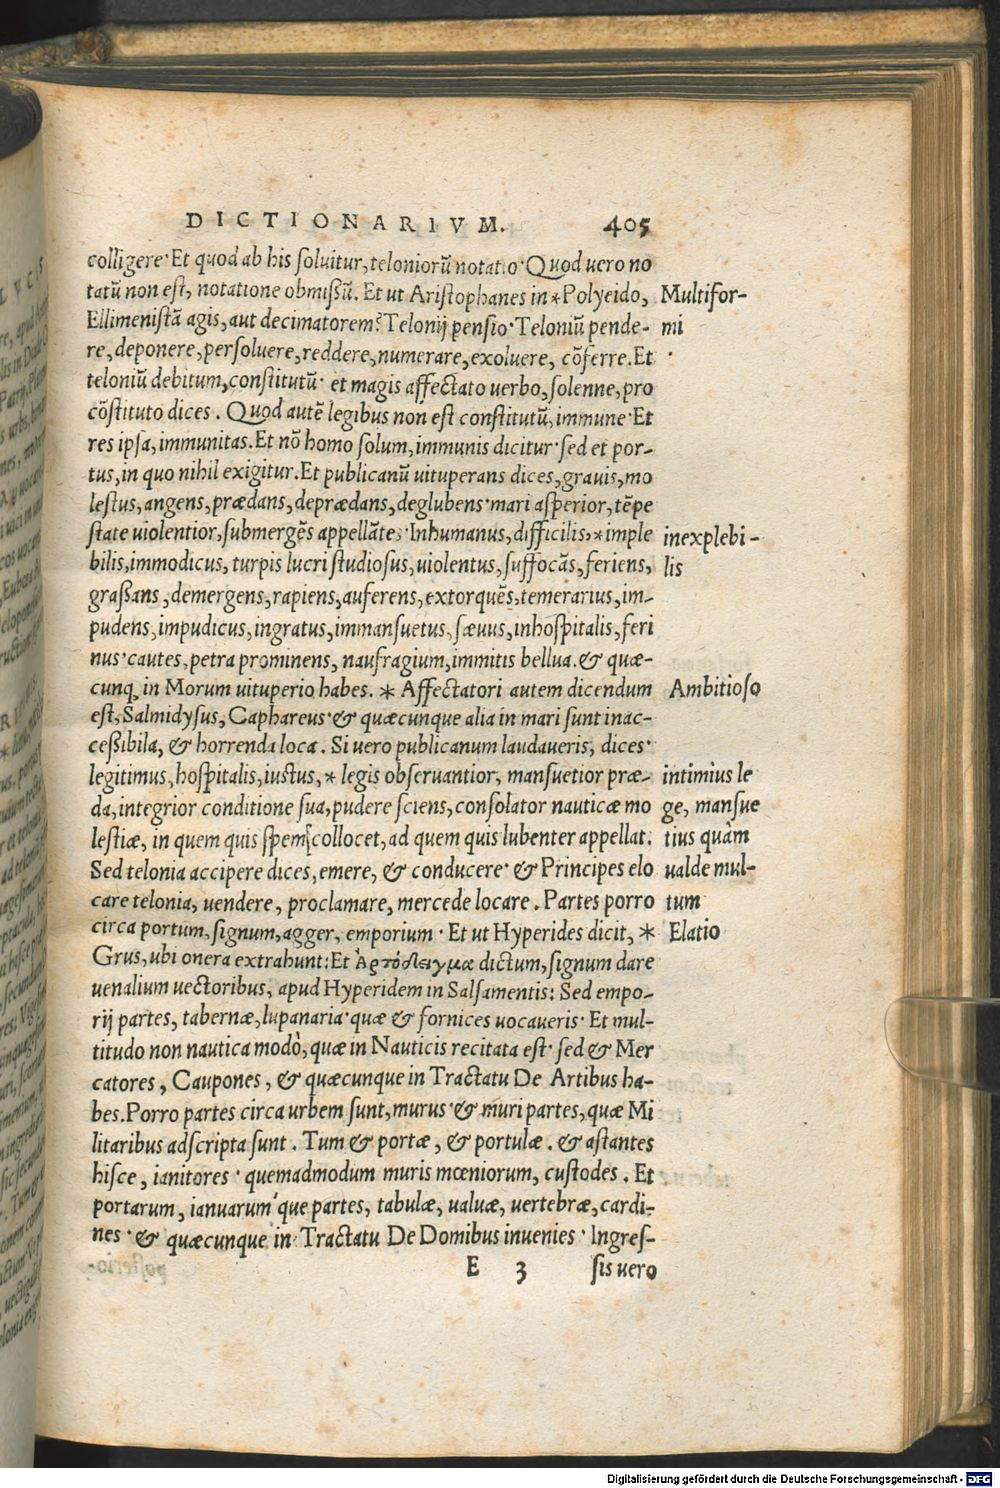 DICTIONARIVM. 405
colligere· Et quod ab his soluitur, teloniorū notatio· Quod uero no
tatū non est, notatione obmissū. Et ut Aristophanes in * Polyeido, Multifor-
Ellimenistā agis, aut decimatorem? Telonij pensio· Teloniū pende- mi
re, deponere, persoluere, reddere, numerare, exoluere, cōferre. Et
teloniū debitum, constitutū· et magis affectato uerbo, solenne, pro
cōstituto dices. Quod autē legibus non est constitutū, immune· Et
res ipsa, immunitas. Et nō homo solum, immunis dicitur· sed et por-
tus, in quo nihil exigitur. Et publicanū uituperans dices, grauis, mo
lestus, angens, prædans, deprædans, deglubens· mari asperior, tēpe
state uiolentior, submergēs appellātes· Inhumanus, difficilis, * imple inexplebi-
bilis, immodicus, turpis lucri studiosus, uiolentus, suffocās, feriens, lis
grassans, demergens, rapiens, auferens, extorquēs, temerarius, im-
pudens, impudicus, ingratus, immansuetus, sæuus, inhospitalis, feri
nus· cautes, petra prominens, naufragium, immitis bellua. & quæ-
cunq; in Morum uituperio habes. * Affectatori autem dicendum Ambitioso
est, Salmidysus, Caphareus· & quæcunque alia in mari sunt inac-
cessibila, & horrenda loca. Si uero publicanum laudaueris, dices·
legitimus, hospitalis, iustus, * legis obseruantior, mansuetior præ- intimius le
da, integrior conditione sua, pudere sciens, consolator nauticæ mo ge, mansue
lestiæ, in quem quis spem collocet, ad quem quis lubenter appellat. tius quàm
Sed telonia accipere dices, emere, & conducere· & Principes elo ualde mul-
care telonia, uendere, proclamare, mercede locare. Partes porro tum
circa portum, signum, agger, emporium· Et ut Hyperides dicit, * Elatio
Grus, ubi onera extrahunt: Et dictum, signum dare
uenalium uectoribus, apud Hyperidem in Salsamentis: Sed empo-
rij partes, tabernæ, lupanaria· quæ & fornices uocaueris· Et mul-
titudo non nautica modò, quæ in Nauticis recitata est· sed & Mer
catores, Caupones, & quæcunque in Tractatu De Artibus ha-
bes. Porro partes circa urbem sunt, murus· & muri partes, quæ Mi
litaribus adscripta sunt. Tum & portæ, & portulæ. & astantes
hisce, ianitores· quemadmodum muris mœniorum, custodes. Et
portarum, ianuarum'que partes, tabulæ, ualuæ, uertebræ, cardi-
nes· & quæcunque in Tractatu De Domibus inuenies· Ingres-
E 3 sis uero
Digitalisierung gefördert durch die Deutsche Forschungsgemeinschaft - DFG